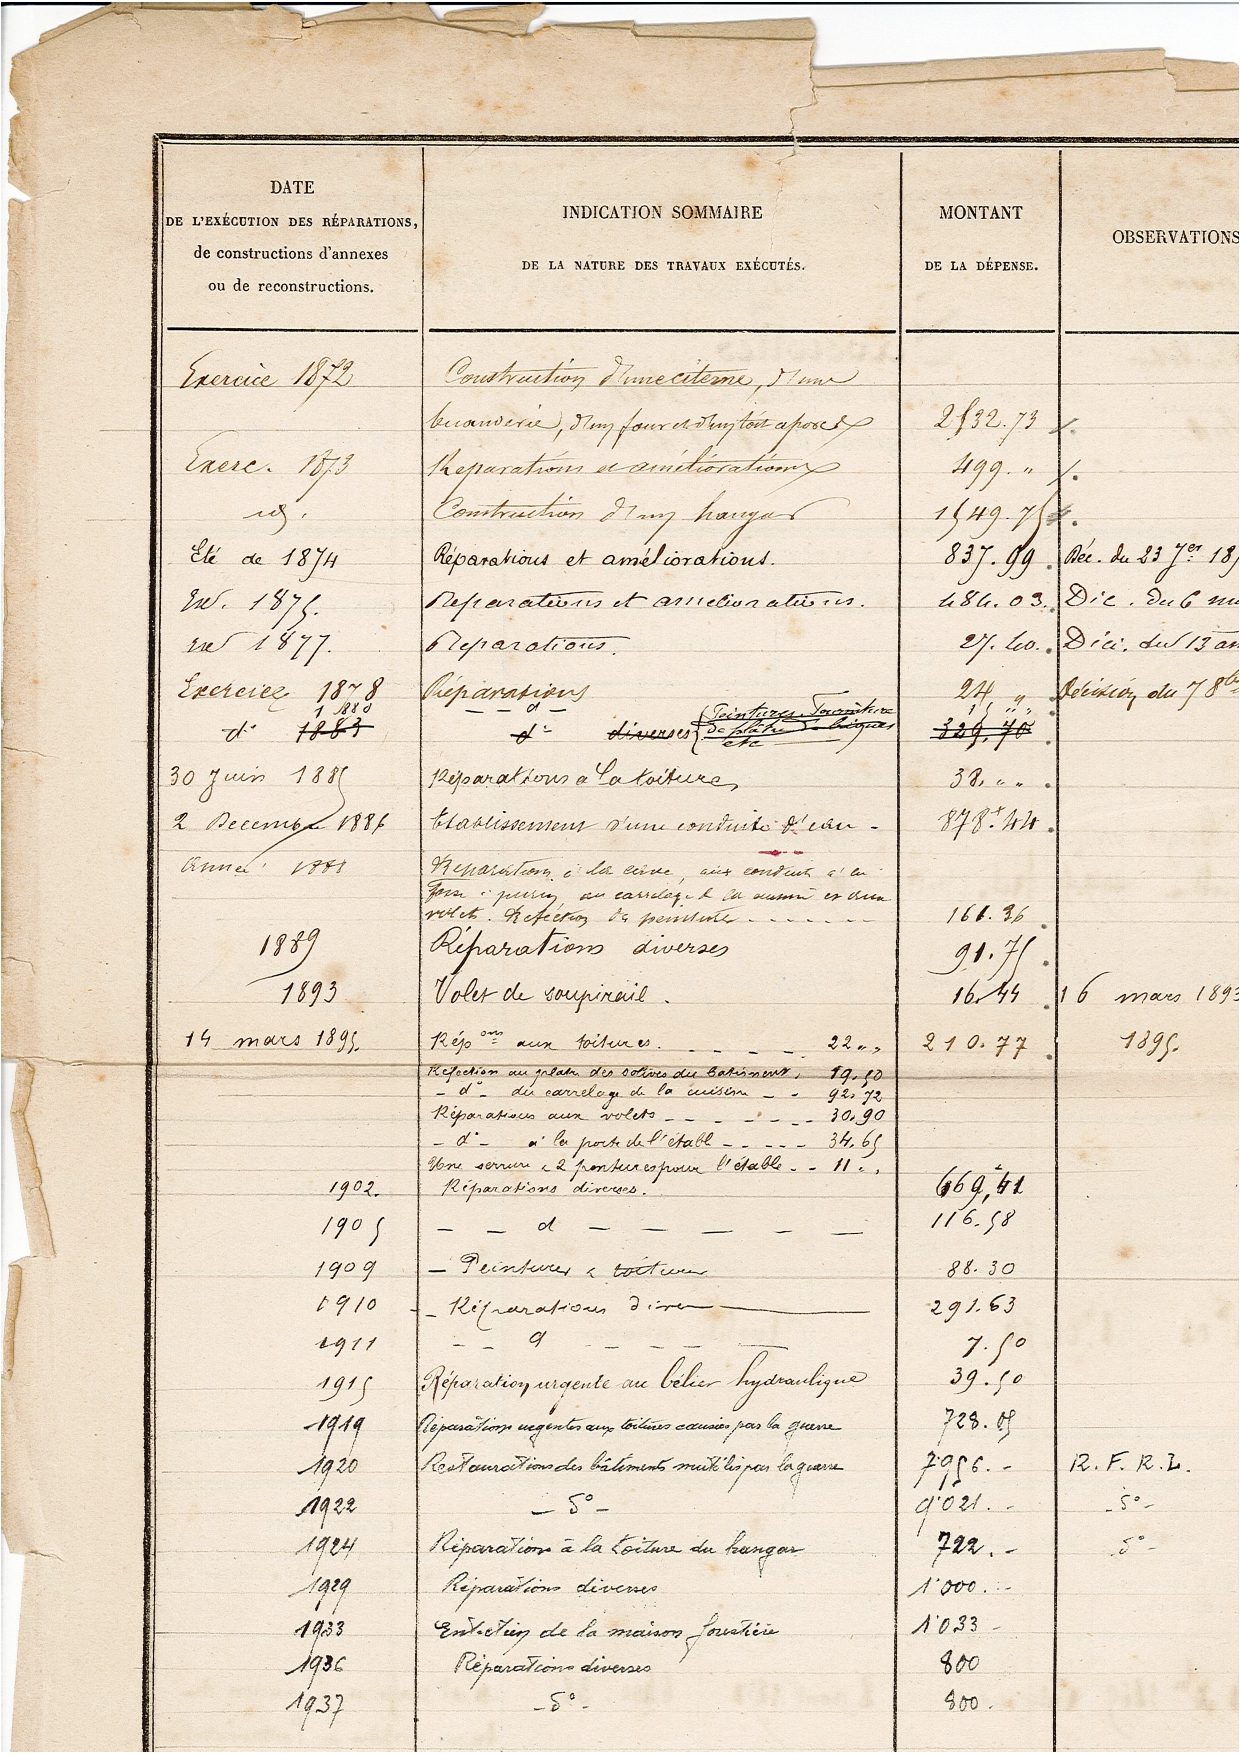 DATE
DE L'EXÉCUTION DES RÉPARATIONS,
de constructions d'annexes
ou de reconstructions.
INDICATION SOMMAIRE
DE LA NATURE DES TRAVAUX EXÉCUTÉS.
MONTANT
DE LA DÉPENSE.
OBSERVATIONS
Exercice 1872 Construction d'une citerne, d'une
buanderie, d'un four et d'un toit a porcs 2532.73
Exerc. 1873 Réparations et améliorations 499. "
id. Construction d'un hangar 1549.75
Eté de 1874 Réparations et améliorations. 835.99 Déc. du 23 7er 18
Ex. 1875. Reparations et ameliorations. 484.03. Dic. du 6
1877. Reparations. 25.40. Déci. du 13
Exercice 1878 Réparations 24 " Décision du 7 8bre
1880 d° 15 " "
d° 1883 d° diverses Peintures. Fourniture
de plâtre de briques
etc 329,70
30 Juin 1885 Réparations a la toiture 38. " "
2 Decembre 1886 Etablissement d'une conduite d'eau - 878f.44
Année 1888 Réparations à la cave, aux conduits à la
fosse à purin au carrelage de la cuisine et d'un
volet. Réfection de peinture 161.36
1889 Réparations diverses 91.75
1893 Volet de soupirail. 16.44 16 mars 1893
14 mars 1895. Répons aux toitures. 22 " " 210.77 1895.
Refection au platre des solives du batiment, 19.50
- d° - du carrelage de la cuisine - - 92.72
Réparations aux volets 30.90
- d° - à la porte de l'étable 34.65
Une serrure & 2 pentures pour l'étable - - 11 " "
1902. Réparations diverses. 669,41
1905 d 116.58
1909 - Peintures & toitures 88.30
1910 - Réparations diver 291.63
1911 d 7.50
1915 Réparation urgente au bélier hydraulique 39.50
1919 Réparations urgentes aux toitures causées par la guerre 728.05
1920 Restaurations des bâtiments mutilés par la guerre 7956. - R. F. R. L.
1922 - d° - 9'021. - - d° -
1924 Réparation à la toiture du hangar 722. - d° -
1929 Réparations diverses 1'000. -
1933 Entretien de la maison forestière 1'033 -
1936 Réparations diverses 800
1937 - d° - 800.